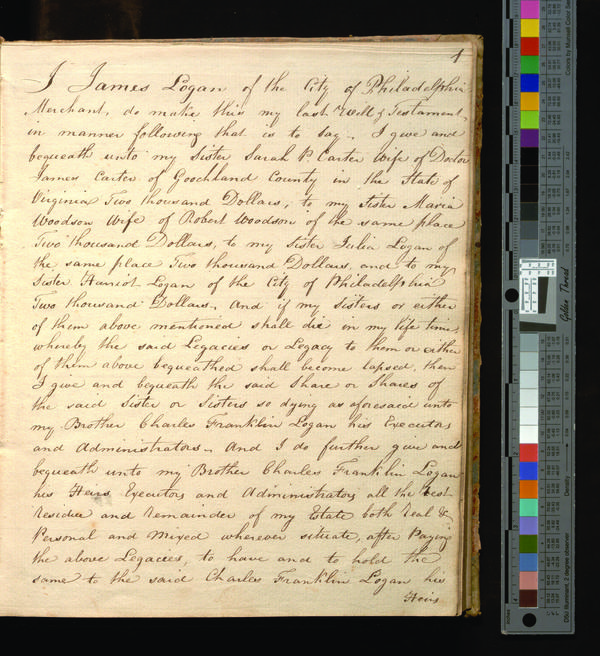 1
I James Logan of the City of Philadelphia
Merchant, do make this my last Will & Testament,
in manner following that is to say. I give and
bequeath unto my Sister Sarah P Carter Wife of Doctor
James Carter of Goochland County in the State of
Virginia Two thousand Dollars, to my Sister Maria
Woodson Wife of Robert Woodson of the same place
Two thousand Dollars, to my Sister Julia Logan of
the same place Two thousand Dollars, and to my
Sister Harriot Logan of the City of Philadelphia
Two thousand Dollars. And if my sisters or either
of them above mentioned shall die in my life time,
whereby the said Legacies or Legacy to them or either
of them above bequeathed shall become lapsed, then
I give and bequeath the said Share or Shares of
the said Sister or Sisters so dying as aforesaid unto
my Brother Charles Franklin Logan his Executors
and Administrators. And I do further give and
bequeath unto my Brother Charles Franklin Logan
his Heirs Executors and Administrators all the rest
residue and remainder of my Estate both real &
Personal and mixed wherever situate, after Paying
the above Legacies, to have and to hold the
same to the said Charles Franklin Logan his
Heirs
Colors by Munsell Color
Golden Thread
Density